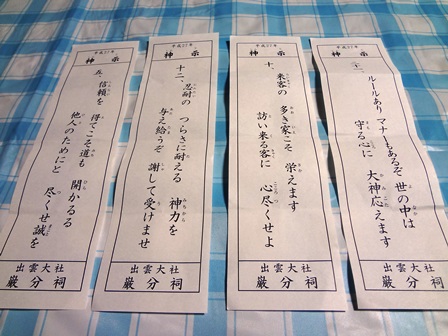 平成27年
神示
ルールあり マナーもあるぞ 世の中は
守る心に 大神応えます
出雲大社
厳分祠
平成27年
神示
十、来客の 多き家こそ 栄えます
訪い来る客に 心尽くせよ
出雲大社
厳分祠
平成27年
神示
十二、忍耐の つらさに耐える 神力を
与え給うぞ 謝して受けませ
出雲大社
厳分祠
平成27年
神示
五、信頼を 得てこそ道も 開かるる
他人のためにと 尽くせ誠を
出雲大社
厳分祠